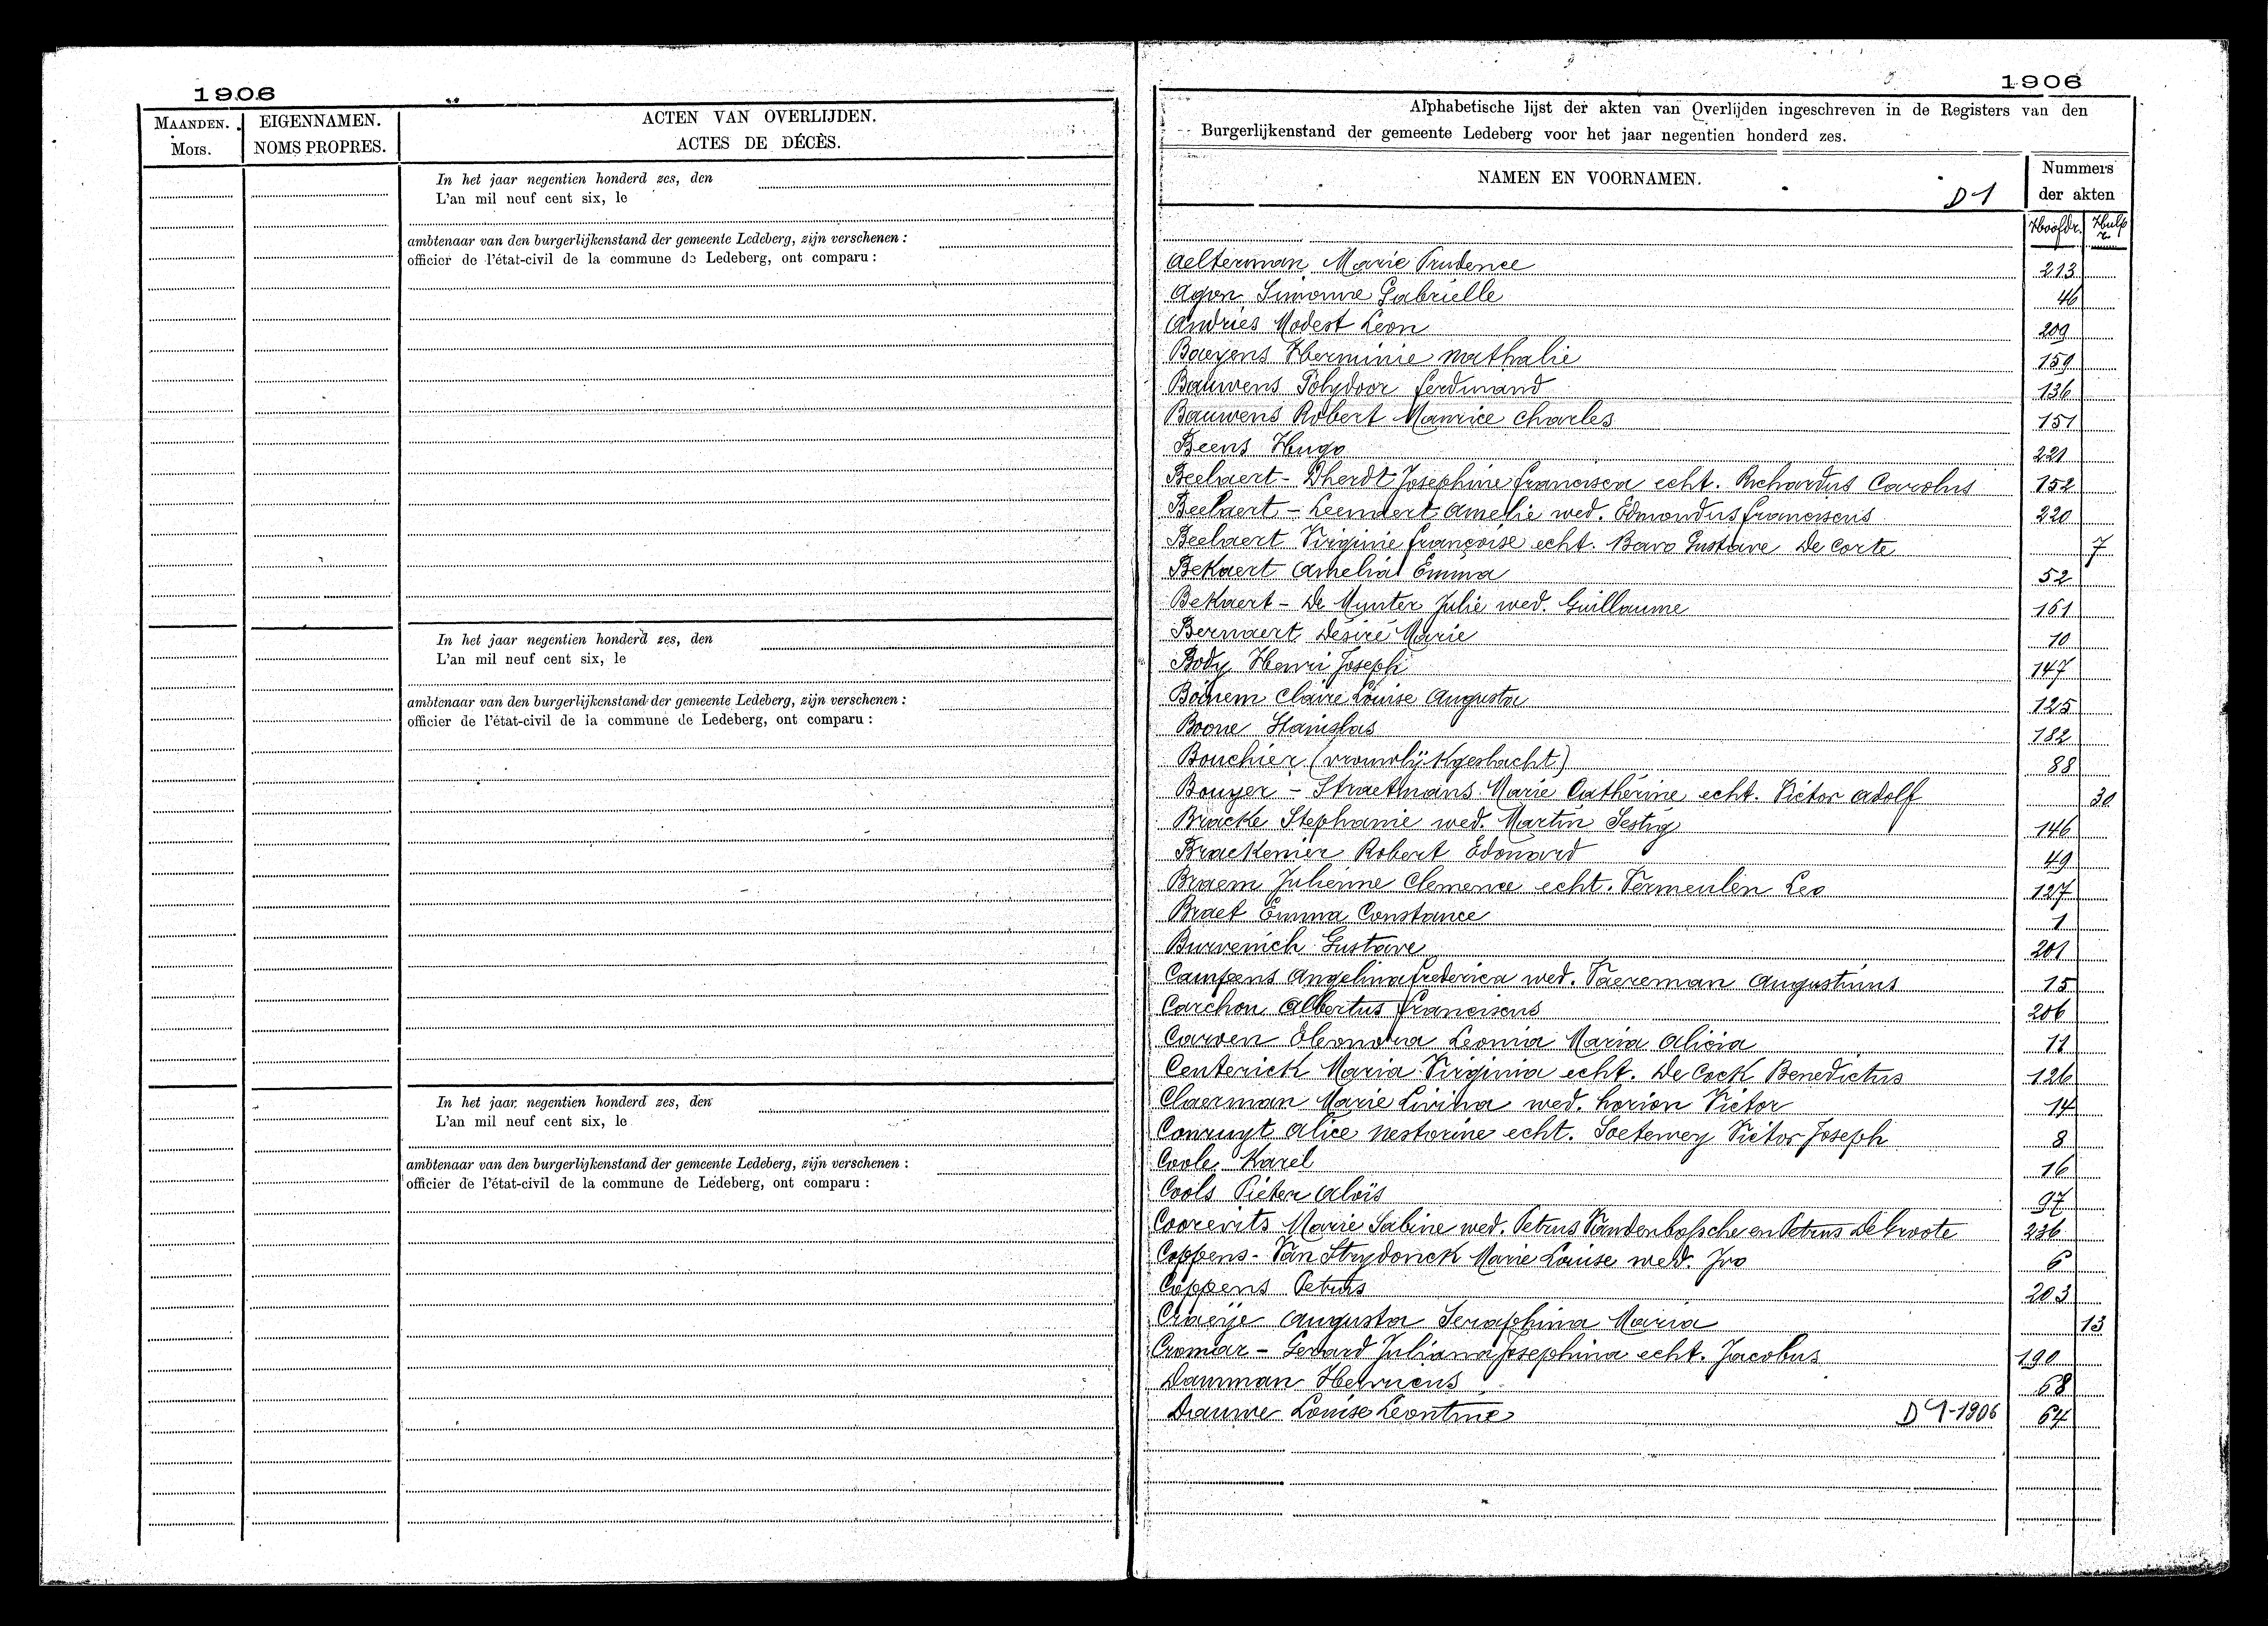 1906
MAANDEN.
Mois.
EIGENNAMEN.
NOMS PROPRES.
ACTEN VAN OVERLIJDEN.
ACTES DE DÉCÈS.
In het jaar negentien honderd zes, den
L'an mil neuf cent six, le
ambtenaar van den burgerlijkenstand der gemeente Ledeberg, zijn verschenen :
officier de l'état-civil de la commune de Ledeberg, ont comparu :
In het jaar negentien honderd zes, den
L'an mil neuf cent six, le
ambtenaar van den burgerlijkenstand der gemeente Ledeberg, zijn verschenen :
officier de l'état-civil de la commune de Ledeberg, ont comparu :
In het jaar negentien honderd zes, den
L'an mil neuf cent six, le
ambtenaar van den burgerlijkenstand der gemeente Ledeberg, zijn verschenen :
officier de l'état-civil de la commune de Ledeberg, ont comparu :
1906
Alphabetische lijst der akten van Overlijden ingeschreven in de Registers van den
Burgerlijkenstand der gemeente Ledeberg voor het jaar negentien honderd zes.
NAMEN EN VOORNAMEN.
D1
Nummers
der akten
Hoofdr. Hulp r.
Aelterman Marie Prudence 213
Agon Simonne Gabrielle 46
Andries Modest Leon 209
Baeyens Herminie Nathalie 159
Bauwens Polydoor Ferdinand 136
Bauwens Robert Maurice Charles 151
Beens Hugo 221
Beelaert - Dherdt Josephine Francisca echt. Richardus Carolus 152
Beelaert - Leenaert Amelie wed. Edmondus Franciscus 220
Beelaert Virginie Françoise echt. Bavo Gustave De Corte 7
Bekaert Amelia Emma 52
Bekaert - De Munter Julie wed. Guillaume 161
Bernaert Désiré Marie 10
Body Henri Joseph 147
Bonem Claire Louise Augusta 125
Boone Stanislas 182
Bouchier (vrouwlijk geslacht) 88
Bouyer - Straetmans Marie Catherine echt. Victor Adolf 30
Bracke Stephanie wed. Martin Sestig 146
Brackenier Robert Edouard 49
Braem Julienne Clemence echt. Vermeulen Leo 127
Braet Emma Constance 1
Burvenich Gustave 201
Campens Angelina Frederica wed. Vaereman Augustinus 15
Carchon Albertus Franciscus 206
Carven Eleonora Leonia Maria Alicia 11
Centerick Maria Virginia echt. De Cock Benedictus 126
Claerman Marie Livina wed. Horion Victor 14
Conruyt Alice Nestorine echt. Soetewey Victor Joseph 8
Coole Karel 16
Cools Pieter Aloïs 97
Coorevits Marie Sabine wed. Petrus Vandenbossche en Petrus De Groote 236
Coppens - Van Strydonck Marie Louise wed. Ivo 6
Coppens Petrus 203
Craeije Augusta Seraphina Maria 13
Cromar - Gerard Juliana Josephina echt. Jacobus 190
Dauman Henricus 68
Dauwe Louise Leontine D1-1906 64